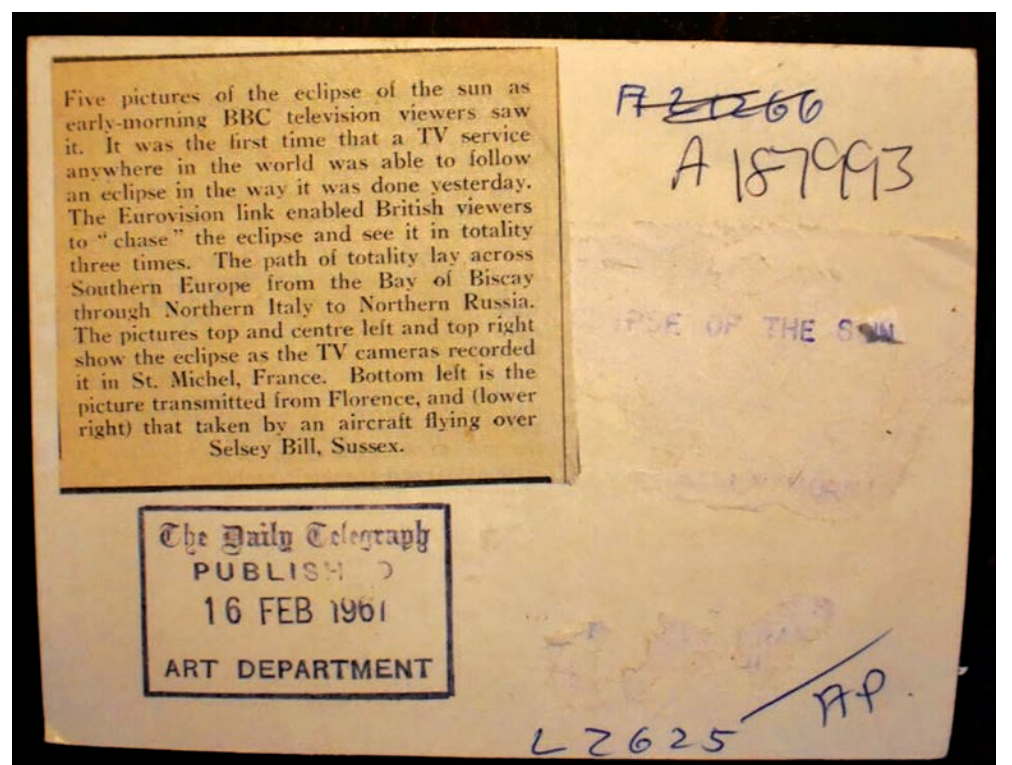 Five pictures of the eclipse of the sun as
early-morning BBC television viewers saw
it. It was the first time that a TV service
anywhere in the world was able to follow
an eclipse in the way it was done yesterday.
The Eurovision link enabled British viewers
to “chase” the eclipse and see it in totality
three times. The path of totality lay across
Southern Europe from the Bay of Biscay
through Northern Italy to Northern Russia.
The pictures top and centre left and top right
show the eclipse as the TV cameras recorded
it in St. Michel, France. Bottom left is the
picture transmitted from Florence, and (lower
right) that taken by an aircraft flying over
Selsey Bill, Sussex.
A187993
OF THE SUN
The Daily Telegraph
PUBLISHED
16 FEB 1961
ART DEPARTMENT
LZ625 / AP.